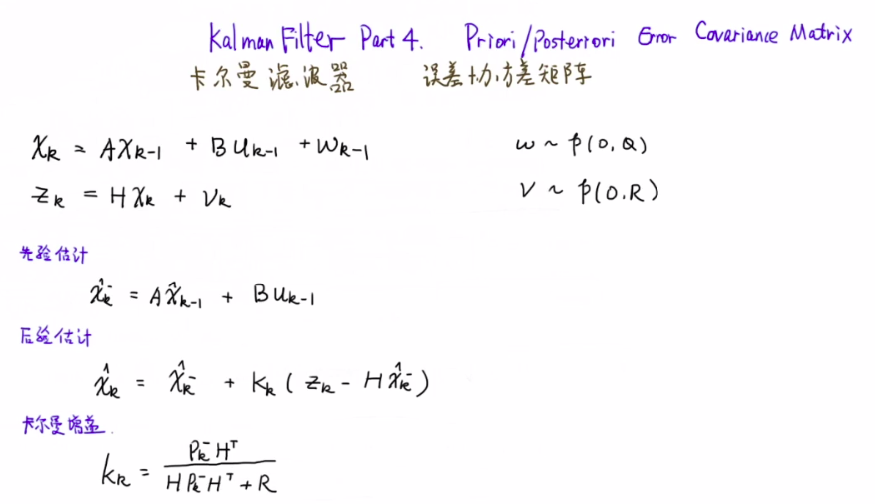 Kalman Filter Part 4. Priori/Posterriori Error Covariance Matrix
卡尔曼滤波器 误差协方差矩阵
X_k = AX_{k-1} + BU_{k-1} + W_{k-1} w ~ P(0,Q)
Z_k = HX_k + V_k V ~ P(0,R)
先验估计
x̂_k^- = Ax̂_{k-1} + BU_{k-1}
后验估计
x̂_k = x̂_k^- + K_k(Z_k - Hx̂_k^-)
卡尔曼增益
K_k = P_k^- H^T / (H P_k^- H^T + R)